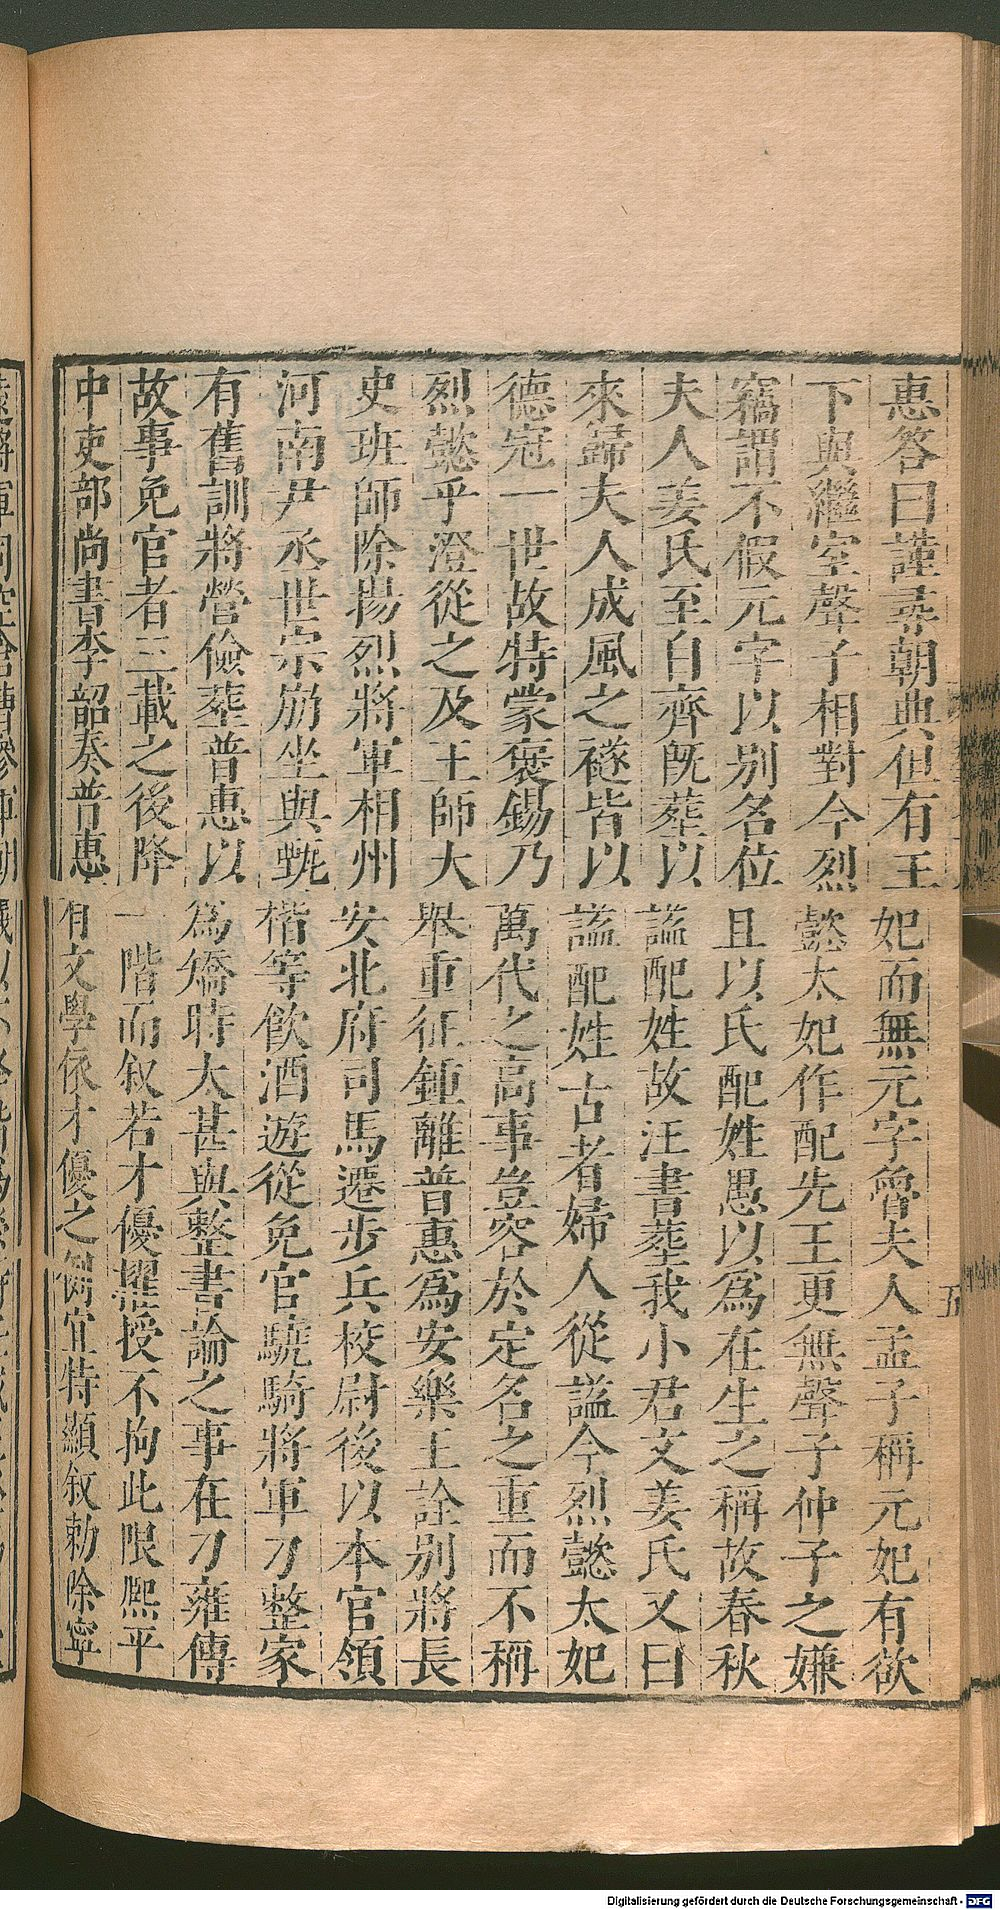 惠答曰謹尋朝典但有王妃而無元字魯夫人孟子稱元妃有欲
下與繼室聲子相對今烈懿太妃作配先王更無聲子仲子之嫌
竊謂不假元字以別名位且以氏配姓愚以爲在生之稱故春秋
夫人姜氏至自齊旣葬以謚配姓故汪書葬我小君文姜氏又曰
來歸夫人成風之襚皆以謚配姓古者婦人從謚今烈懿太妃
德冠一世故特蒙褒錫乃萬代之高事豈容於定名之重而不稱
烈懿乎澄從之及王師大舉重征鍾離普惠爲安樂王詮別將長
史班師除揚烈將軍相州安北府司馬遷步兵校尉後以本官領
河南尹丞世宗崩坐與甄楷等飲酒遊從免官驍騎將軍刁整家
有舊訓將營儉葬普惠以爲矯時太甚與整書論之事在刁雍傳
故事免官者三載之後降一階而叙若才優擢授不拘此限熙平
中吏部尚書李韶奏普惠有文學依才優之例宜特顯叙勅除寧
五
Digitalisierung gefördert durch die Deutsche Forschungsgemeinschaft - DFG